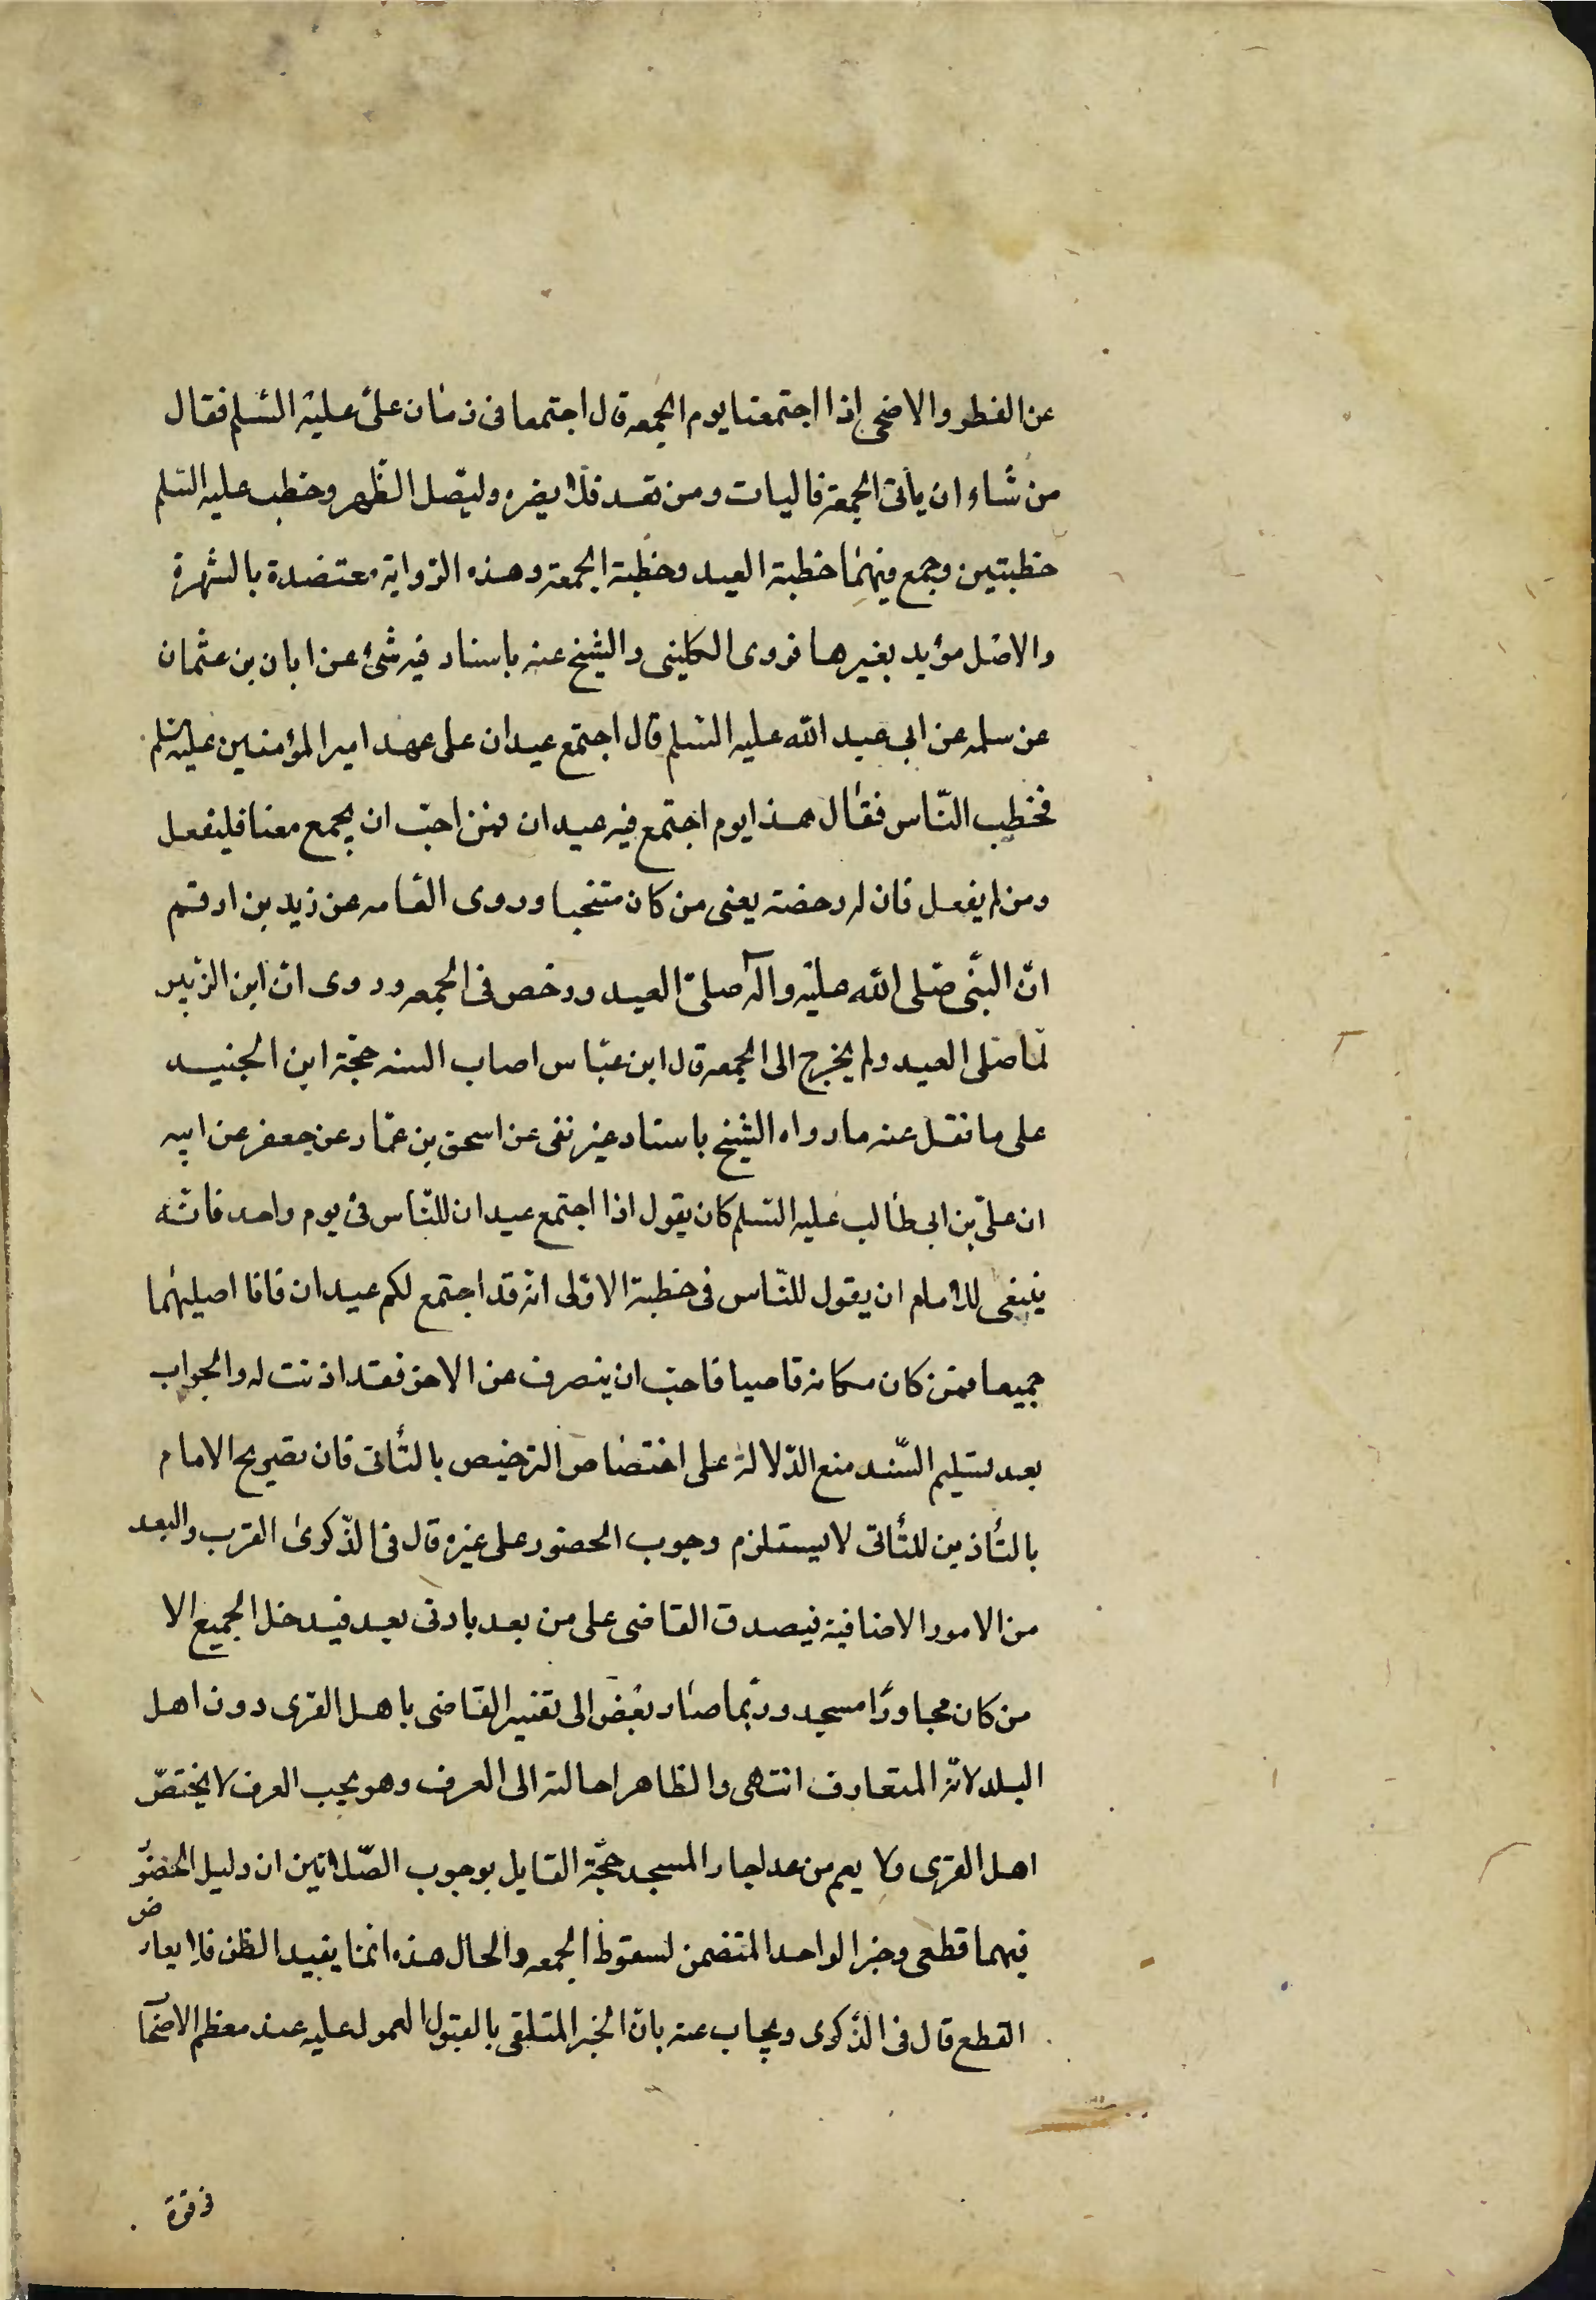 عن الفطر والاضحى اذا اجتمعنا يوم الجمعه قال اجتمعا فى زمان علىّ عليه السّلم فقال
من شاء ان يأتى الجمعة فاليات ومن قعد فلا يضره وليصّل الظّهر وخطب عليه السّلم
خطبتين وجمع فيهما خطبة العيد وخطبة الجمعة وهذه الرّواية معتضدة بالشهرة
والاصل مؤيد بغيرها فروى الكلينى والشيخ عنه باسناد فيه شئ عن ابان بن عثمان
عن سلمه عن ابي عبد الله عليه السّلم قال اجتمع عيدان على عهد امير المؤمنين عليه سلم
فخطب النّاس فقال هذا يوم اجتمع فيه عيدان فمن احبّ ان يجمع معنا فليفعل
ومن لم يفعل فان له رخصة يعنى من كان متنحيا وروى العّامه عن زيد بن ارقم
انّ النبّى صّلى الله عليه وآله صلىّ العيد ورخص فى الجمعه وروى انّ ابن الزّبير
لّما صّلى العيد ولم يخرج الى الجمعه قال ابن عبّاس اصاب السنه حجّة ابن الجنيد
على ما نقل عنه ما رواه الشيخ باسناد غير نقى عن اسحق بن عمّار عن جعفر عن ابيه
ان علىّ بن ابى طالب عليه السّلم كان يقول اذا اجتمع عيدان للنّاس فى يوم واحد فانّه
ينبغى للامام ان يقول للنّاس فى خطبة الاوّلى انّه قد اجتمع لكم عيدان فانا اصليهما
جميعا فمن كان مكانه قاصيا فاحبّ ان ينصرف عن الاخر فقد اذنت له والجواب
بعد تسليم السّند منع الدّلالة على اختصاص الترخيص بالنّائى فان تصريح الامام
بالتأذين للنّائى لا يستلزم وجوب الحضور على غيره قال فى الذّكرى القرب والبعد
من الامور الاضافية فيصدق القاصى على من بعد بادنى بعد فيدخل الجميع الا
من كان مجاورًا مسجد وربّما صار بعض الى تفسير القاصى باهل القرى دون اهل
البلد لانّه المتعارف انتهى والظاهر احالته الى العرف وهو بحسب العرف لا يختصّ
اهل القرى ولا يعم من عدا جار المسجد حجّة القايل بوجوب الصّلاتين ان دليل الحضوّ
فيهما قطعى وخبر الواحد المتضمن لسقوط الجمعه والحال هذه انما يفيد الظن فلا يعارض
القطع قال فى الذّكرى ويجاب عنه بانّ الخبر المتلقى بالقبول المعمول عليه عند معظم الاصحا
فى قوة